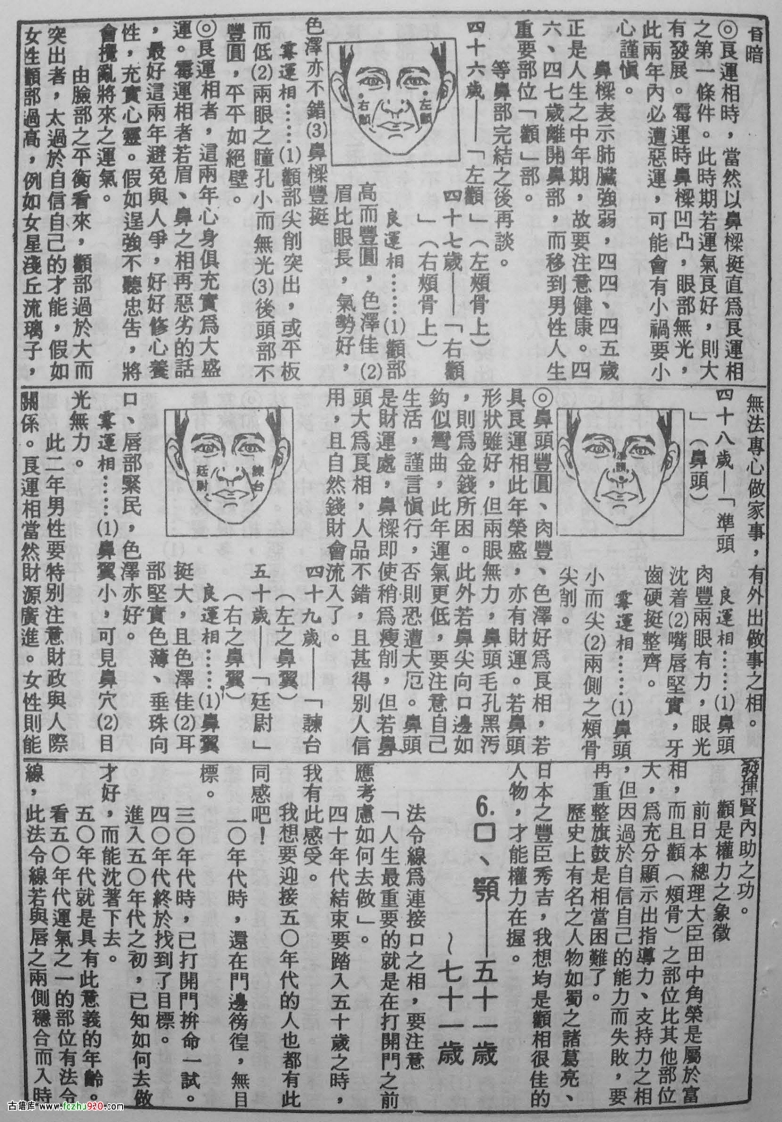 音暗
◎良運相時，當然以鼻樑挺直爲良運相
之第一條件。此時期若運氣良好，則大
有發展。霉運時鼻樑凹凸，眼部無光，
此兩年內必遭惡運，可能會有小禍要小
心謹愼。
鼻樑表示肺臟強弱，四四、四五歲
正是人生之中年期，故要注意健康。四
六、四七歲離開鼻部，而移到男性人生
重要部位「顴」部。
等鼻部完結之後再談。
四十六歲——「左顴」（左頰骨上）
四十七歲——「右顴
」（右頰骨上）
良運相……⑴顴部
高而豐圓，色澤佳⑵
眉比眼長，氣勢好，
左顴
右顴
色澤亦不錯⑶鼻樑豐挺
霉運相……⑴顴部尖削突出，或平板
而低⑵兩眼之瞳孔小而無光⑶後頭部不
豐圓，平平如絕壁。
◎良運相者，這兩年心身俱充實爲大盛
運。霉運相者若眉、鼻之相再惡劣的話
，最好這兩年避免與人爭，好好修心養
性，充實心靈。假如逞強不聽忠告，將
會攪亂將來之運氣。
由臉部之平衡看來，顴部過於大而
突出者，太過於自信自己的才能，假如
女性顴部過高，例如女星淺丘流璃子，
無法專心做家事，有外出做事之相。
四十八歲——「準頭
」（鼻頭）
良運相……⑴鼻頭
肉豐兩眼有力，眼光
沈着⑵嘴唇堅實，牙
齒硬挺整齊。
霉運相……⑴鼻頭
小而尖⑵兩側之頰骨
尖削。
準頭
◎鼻頭豐圓、肉豐、色澤好爲良相，若
具良運相此年榮盛，亦有財運。若鼻頭
形狀雖好，但兩眼無力，鼻頭毛孔黑污
，則爲金錢所困。此外若鼻尖向口邊如
鈎似彎曲，此年運氣更低，要注意自己
生活，謹言愼行，否則恐遭大厄。鼻頭
是財運處，鼻樑即使稍爲瘦削，但若鼻
頭大爲良相，人品不錯，且甚得別人信
用，且自然錢財會流入了。
四十九歲——「諫台
（左之鼻翼）
五十歲——「廷尉」
（右之鼻翼）
良運相……⑴鼻翼
挺大，且色澤佳⑵耳
部堅實色薄、垂珠向
諫台
廷尉
口、唇部緊民，色澤亦好。
霉運相……⑴鼻翼小，可見鼻穴⑵目
光無力。
此二年男性要特別注意財政與人際
關係。良運相當然財源廣進。女性則能
發揮賢內助之功。
顴是權力之象徵
前日本總理大臣田中角榮是屬於富
相，而且顴（頰骨）之部位比其他部位
大，爲充分顯示出指導力、支持力之相
，但因過於自信自己的能力而失敗，要
再重整旗鼓是相當困難了。
歷史上有名之人物如蜀之諸葛亮、
日本之豐臣秀吉，我想均是顴相很佳的
人物，才能權力在握。
6.口、顎——五十一歲
～七十一歲
法令線爲連接口之相，要注意
「人生最重要的就是在打開門之前
應考慮如何去做」。
四十年代結束要踏入五十歲之時，
我有此感受。
我想要迎接五〇年代的人也都有此
同感吧！
二〇年代時，還在門邊徬徨，無目
標。
三〇年代時，已打開門拚命一試。
四〇年代終於找到了目標。
進入五〇年代之初，已知如何去做
才好，而能沈著下去。
五〇年代就是具有此意義的年齡。
看五〇年代運氣之一的部位有法令
線，此法令線若與唇之兩側穩合而入時
古籍库 www.fozhu920.com